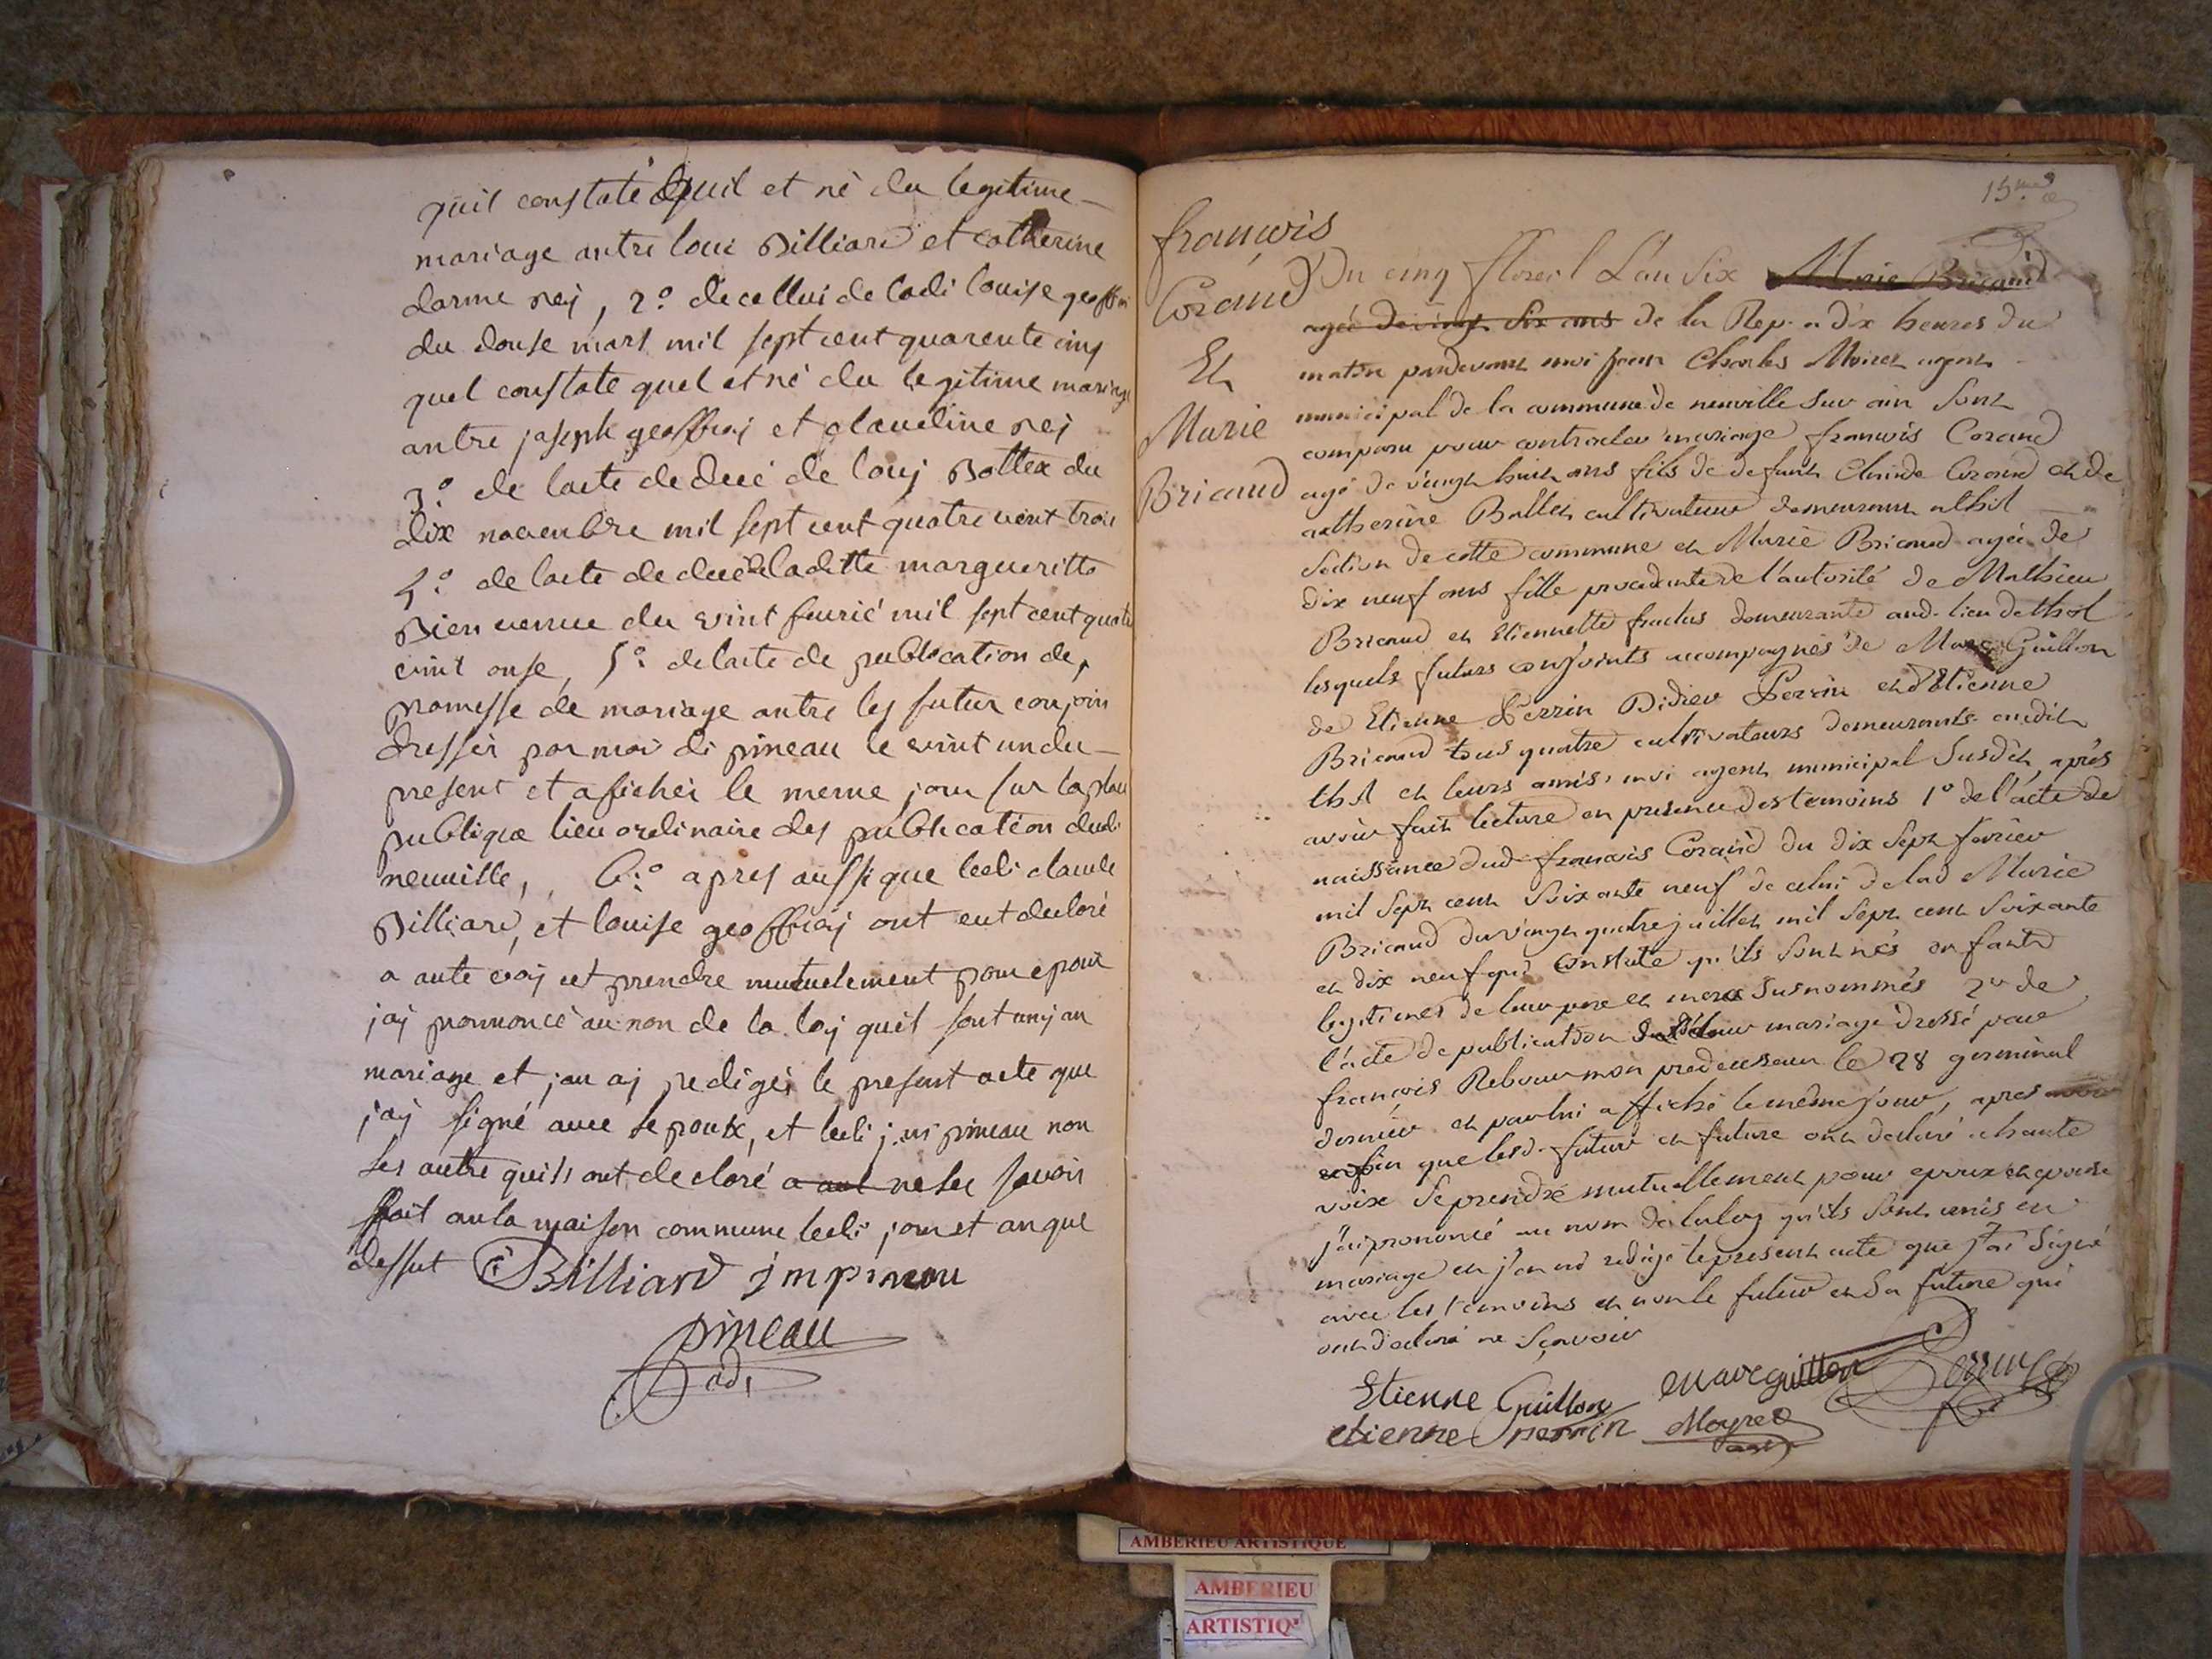 quil constate quil et né du legitime
mariage antre loui Billiard et catherine
darme rej, 2.o de cellui de ladi louise geoffrai
du douse mars mil sept cent quarente cinq
quel constate quel et né du legitime mariage
antre joseph geoffraj et claudine rej
3.o de lacte de decé de louj Bottex du
dix novenbre mil sept cent quatre vint trois
4.o de lacte de decé de laditte margueritte
Bien venue du vint feurié mil sept cent quatre
vint onse, 5.o de lacte de publication de
promesse de mariage antre les futur conjoin
dressés par moi di pineau le vint un du
present et afichéi le meme jour sur la place
publique lieu ordinaire des publication dudi
neuuille, 6.o apres aussi que ledi claude
Billiard, et louise geoffraj ont eut declaré
a aute voaj cet prendre mutuelement pour epoux
jaj prononcé au non de la loy quil sont unj an
mariage et jan aj redigéi le present acte que
jaj signé avec lepoux, et ledi j. m pineau non
les autre quils ont declaré a aut ne les savoir
fait anla maison commune ledi jour et an que
dessut C Billiard j m pineau
pineau
adj
15.me
françois
Corand
Et
Marie
Bricaud
Du cinq floreal L'an Six Marie Bricaud
agée de vingt Six ans de la Rep. a dix heures du
matin pardevant moi jean Charles Moiret agent
municipal de la commune de neuville sur ain Sont
comparu pour contracter mariage francois Corand
agé de vingt huit ans fils de defunt Claude Corand et de
catherine Battet cultivateur demeurant a thol
Section de cette commune et Marie Bricaud agée de
dix neuf ans fille procedante de l'autorité de Mathieu
Bricaud et Etiennette fractus demeurante aud. lieu de thol
lesquels futurs conjoints accompagnés de Marc Guillon
de Etienne Perrin Didier Perrin et d'Etienne
Bricaud tous quatre cultivateurs demeurants audit
thol et leurs amis, moi agent municipal Susdit, après
avoir fait lecture en presence des temoins 1.o de l'acte de
naissance dud. francois Corand du dix Sept fevrier
mil Sept cent Soixante neuf de celui de lad Marie
Bricaud du vingt quatre juillet mil Sept cent Soixante
et dix neuf qui constate qu'ils Sont nés enfants
legitimes de leur pere et mere Susnommés 2.o de
l'acte de publication de leur mariage dressé par
françois Rebour mon predecesseur le 28 germinal
dernier et par lui affiché le même jour, apres
enfin que lesd. futur et future ont declaré a haute
voix Se prendre mutuellement pour epoux et epouse
j'ai prononcé au nom de la loy qu'ils Sont unis en
mariage et j'en ai redigé le present acte que j'ai Signé
avec les temoins et non le futur et la future qui
ont declaré ne Sçavoir
Etienne Guillon marc guillon Perrin
etienne perrin Moyret
agent
AMBERIEU ARTISTIQUE
AMBERIEU
ARTISTIQ